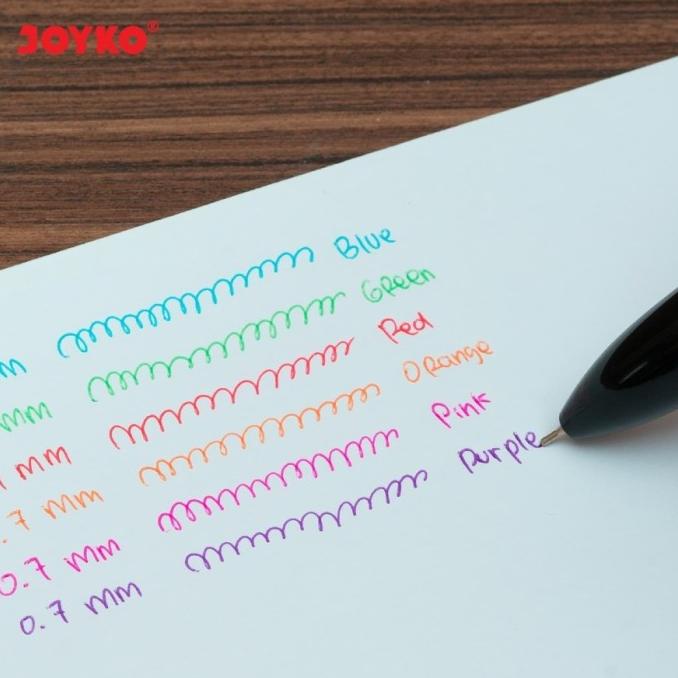 JOYKO®
m Blue
mm Green
mm Red
.7 mm Orange
0.7 mm Pink
0.7 mm Purple